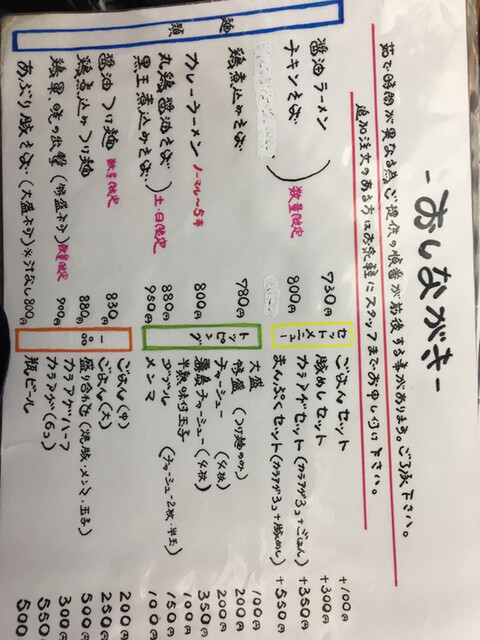 -おしながき-
茹で時間が異なる為、ご提供の順番が前後する事があります。ご了承下さい。
追加注文のある方はお気軽にスタッフまでお申し付け下さい。
麺類
醤油ラーメン 730円
チキンそば 数量限定 800円
鶏煮込みそば 780円
カレーラーメン ノーマル〜5辛 800円
丸鶏醤油そば 880円
黒玉煮込みそば 土・日限定 950円
醤油つけ麺 830円
鶏煮込みつけ麺 数量限定 880円
鶏軍、暁の出撃(特盛不可) 数量限定 900円
あぶり豚そば(大盛不可)※汁なし 800円
セットメニュー
ごはんセット +100円
豚めしセット +300円
カラアゲセット(カラアゲ3コ+ごはん) +350円
まんぷくセット(カラアゲ3コ+豚めし) +550円
トッピング
大盛 100円
特盛(つけ麺のみ) 200円
チャーシュー(4枚) 200円
霧島チャーシュー(4枚) 350円
半熟味付玉子 100円
ダブル(チャーシュー2枚・半玉) 150円
メンマ 100円
一品
ごはん(中) 200円
ごはん(大) 250円
盛り合わせ(焼豚・メンマ・玉子) 500円
カラアゲハーフ 300円
カラアゲ(6コ) 550円
瓶ビール 500